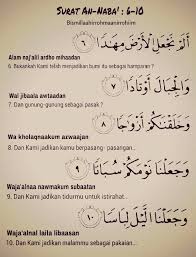 SURAT AN-NABA' : 6-10
Bismillaahirrohmaanirrohiim
أَلَمْ نَجْعَلِ الْأَرْضَ مِهَادًا ٦
Alam naj'alil ardho mihaadan
6. Bukankah Kami telah menjadikan bumi itu sebagai hamparan ?
وَالْجِبَالَ أَوْتَادًا ٧
Wal jibaala awtaadan
7. Dan gunung-gunung sebagai pasak ?
وَخَلَقْنَاكُمْ أَزْوَاجًا ٨
Wa kholaqnaakum azwaajan
8. Dan Kami jadikan kamu berpasang- pasangan...
وَجَعَلْنَا نَوْمَكُمْ سُبَاتًا ٩
Waja'alnaa nawmakum subaatan
9. Dan Kami jadikan tidurmu untuk istirahat..
وَجَعَلْنَا اللَّيْلَ لِبَاسًا ١٠
Waja'alnal laila libaasan
10. Dan Kami jadikan malammu sebagai pakaian...